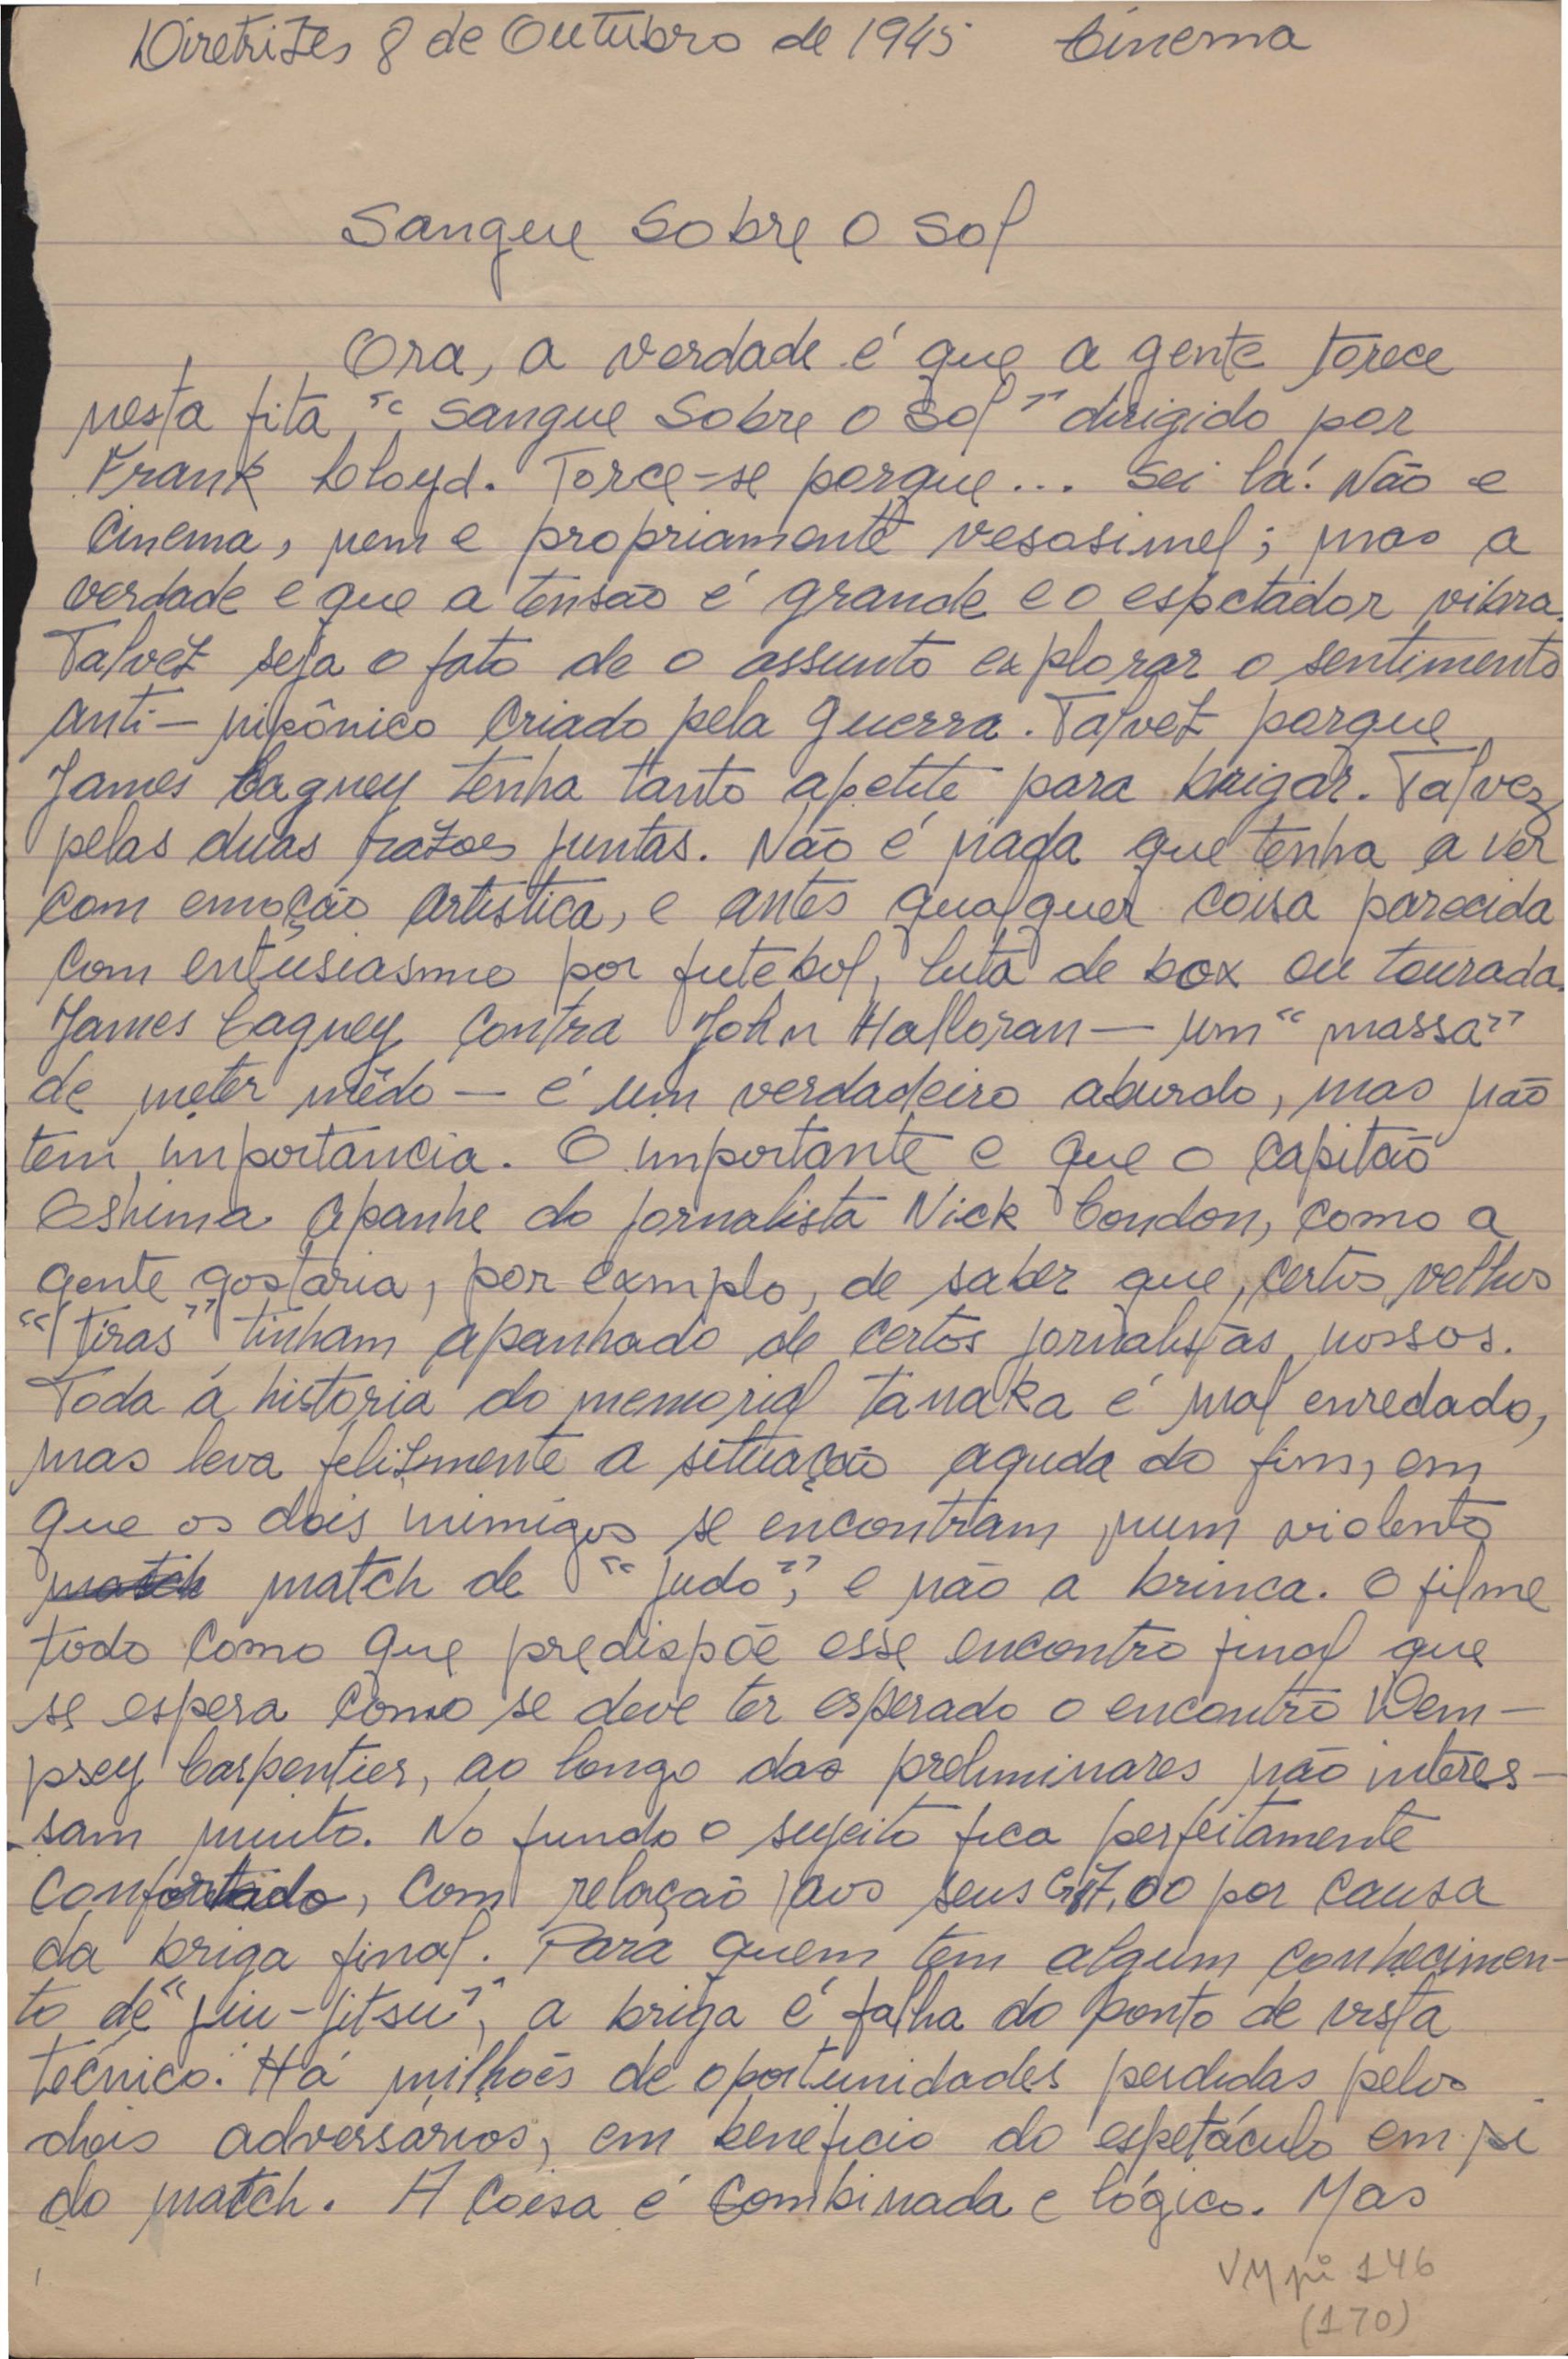 Diretrizes 8 de Outubro de 1945 Cinema
Sangue Sobre o Sol
Ora, a verdade é que a gente torece
nesta fita "Sangue Sobre o Sol" dirigido por
Frank Lloyd. Torce-se porque... Sei lá! Não e
Cinema, nem e propriamente vesosimel; mas a
verdade e que a tensão é grande e o espctador vibra.
Talvez seja o fato de o assunto explorar o sentimento
anti-nipônico criado pela guerra. Talvez porque
James Cagney tenha tanto apetite para brigar. Talvez
pelas duas razões juntas. Não é nada que tenha a ver
com emoção artistica, e antes qualquer coisa parecida
com entusiasmo por futebol, luta de box ou tourada.
James Cagney contra John Halloran — um "massa"
de meter mêdo — é um verdadeiro aburdo, mas não
tem importancia. O importante e que o capitão
Oshima apanhe do jornalista Nick Condon, como a
gente gostaria, por exmplo, de saber que, certos velhos
"tiras" tinham apanhado de certos jornalistas nossos.
Toda a historia do memorial tanaka é mal enredado,
mas leva felizmente a situação aguda do fim, em
que os dois inimigos se encontram num violento
match match de "judo", e não a brinca. O filme
todo como que predispõe esse encontro final que
se espera como se deve ter esperado o encontro Dem-
psey Carpentier, ao longo das preliminares não interes-
sam muito. No fundo o sujeito fica perfeitamente
confortado, com relação aos seus Cr$7,00 por causa
da briga final. Para quem tem algum conhecimen-
to de "jiu-jitsu", a briga é falha do ponto de vista
tecnico. Há milhões de oportunidades perdidas pelos
dois adversários, em beneficio do espetáculo em si
do match. A Coisa é combinada e lógico. Mas
VM pi 146
(170)